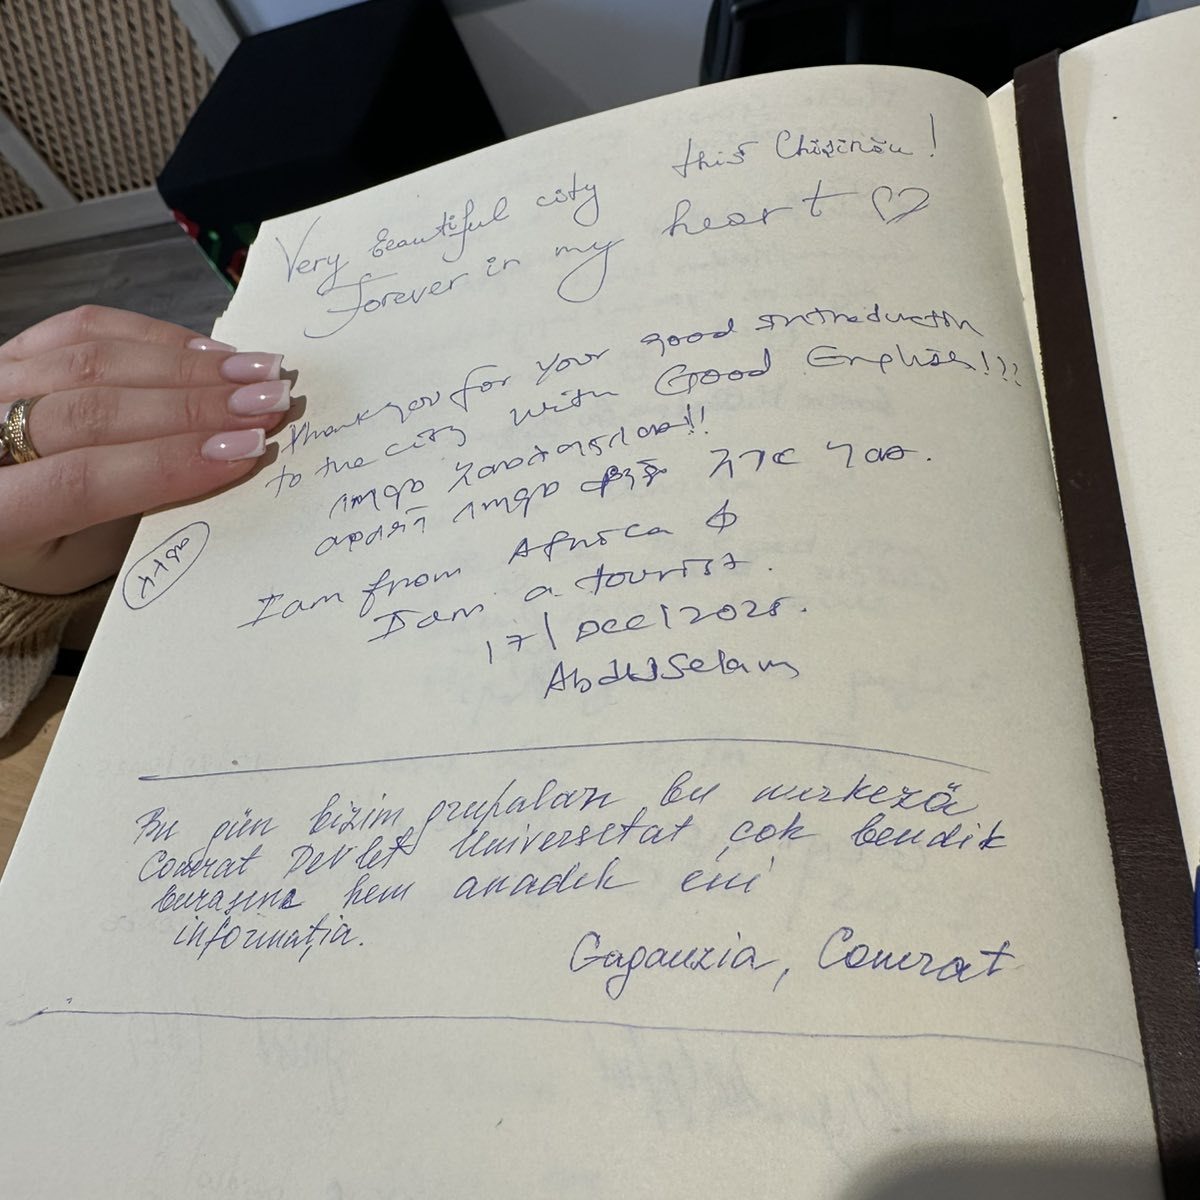 Very beautiful city this Chișinău!
Forever in my heart ♡
Thank you for your good introduction
to the city with Good English!!!
I am from Africa
I am a tourist.
17/Dec/2025.
Abdulselam
Bu gün bizim grupaları bu merkezä
Comrat Devlet Universetat çok bendik
burasına hem anadık eni
informația.
Gagauzia, Comrat